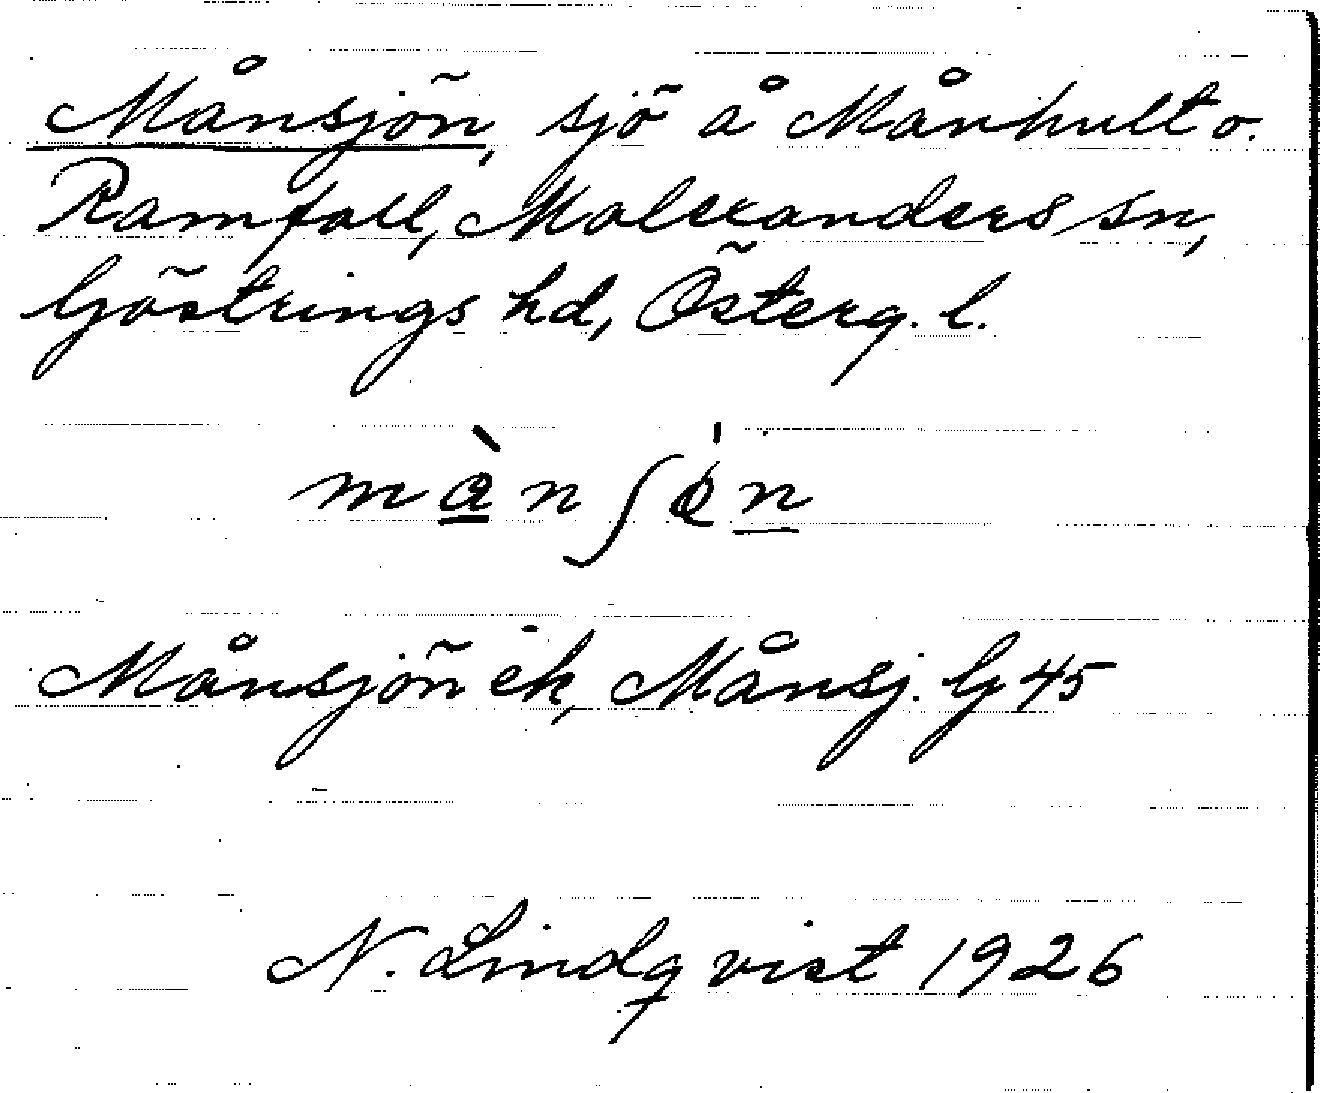 Månsjön, sjö å Månhult o.
Ramfall, Malexanders sn,
Göstrings hd, Österg. l.
Månsjön ek, Månsj. G 45
N. Lindqvist 1926